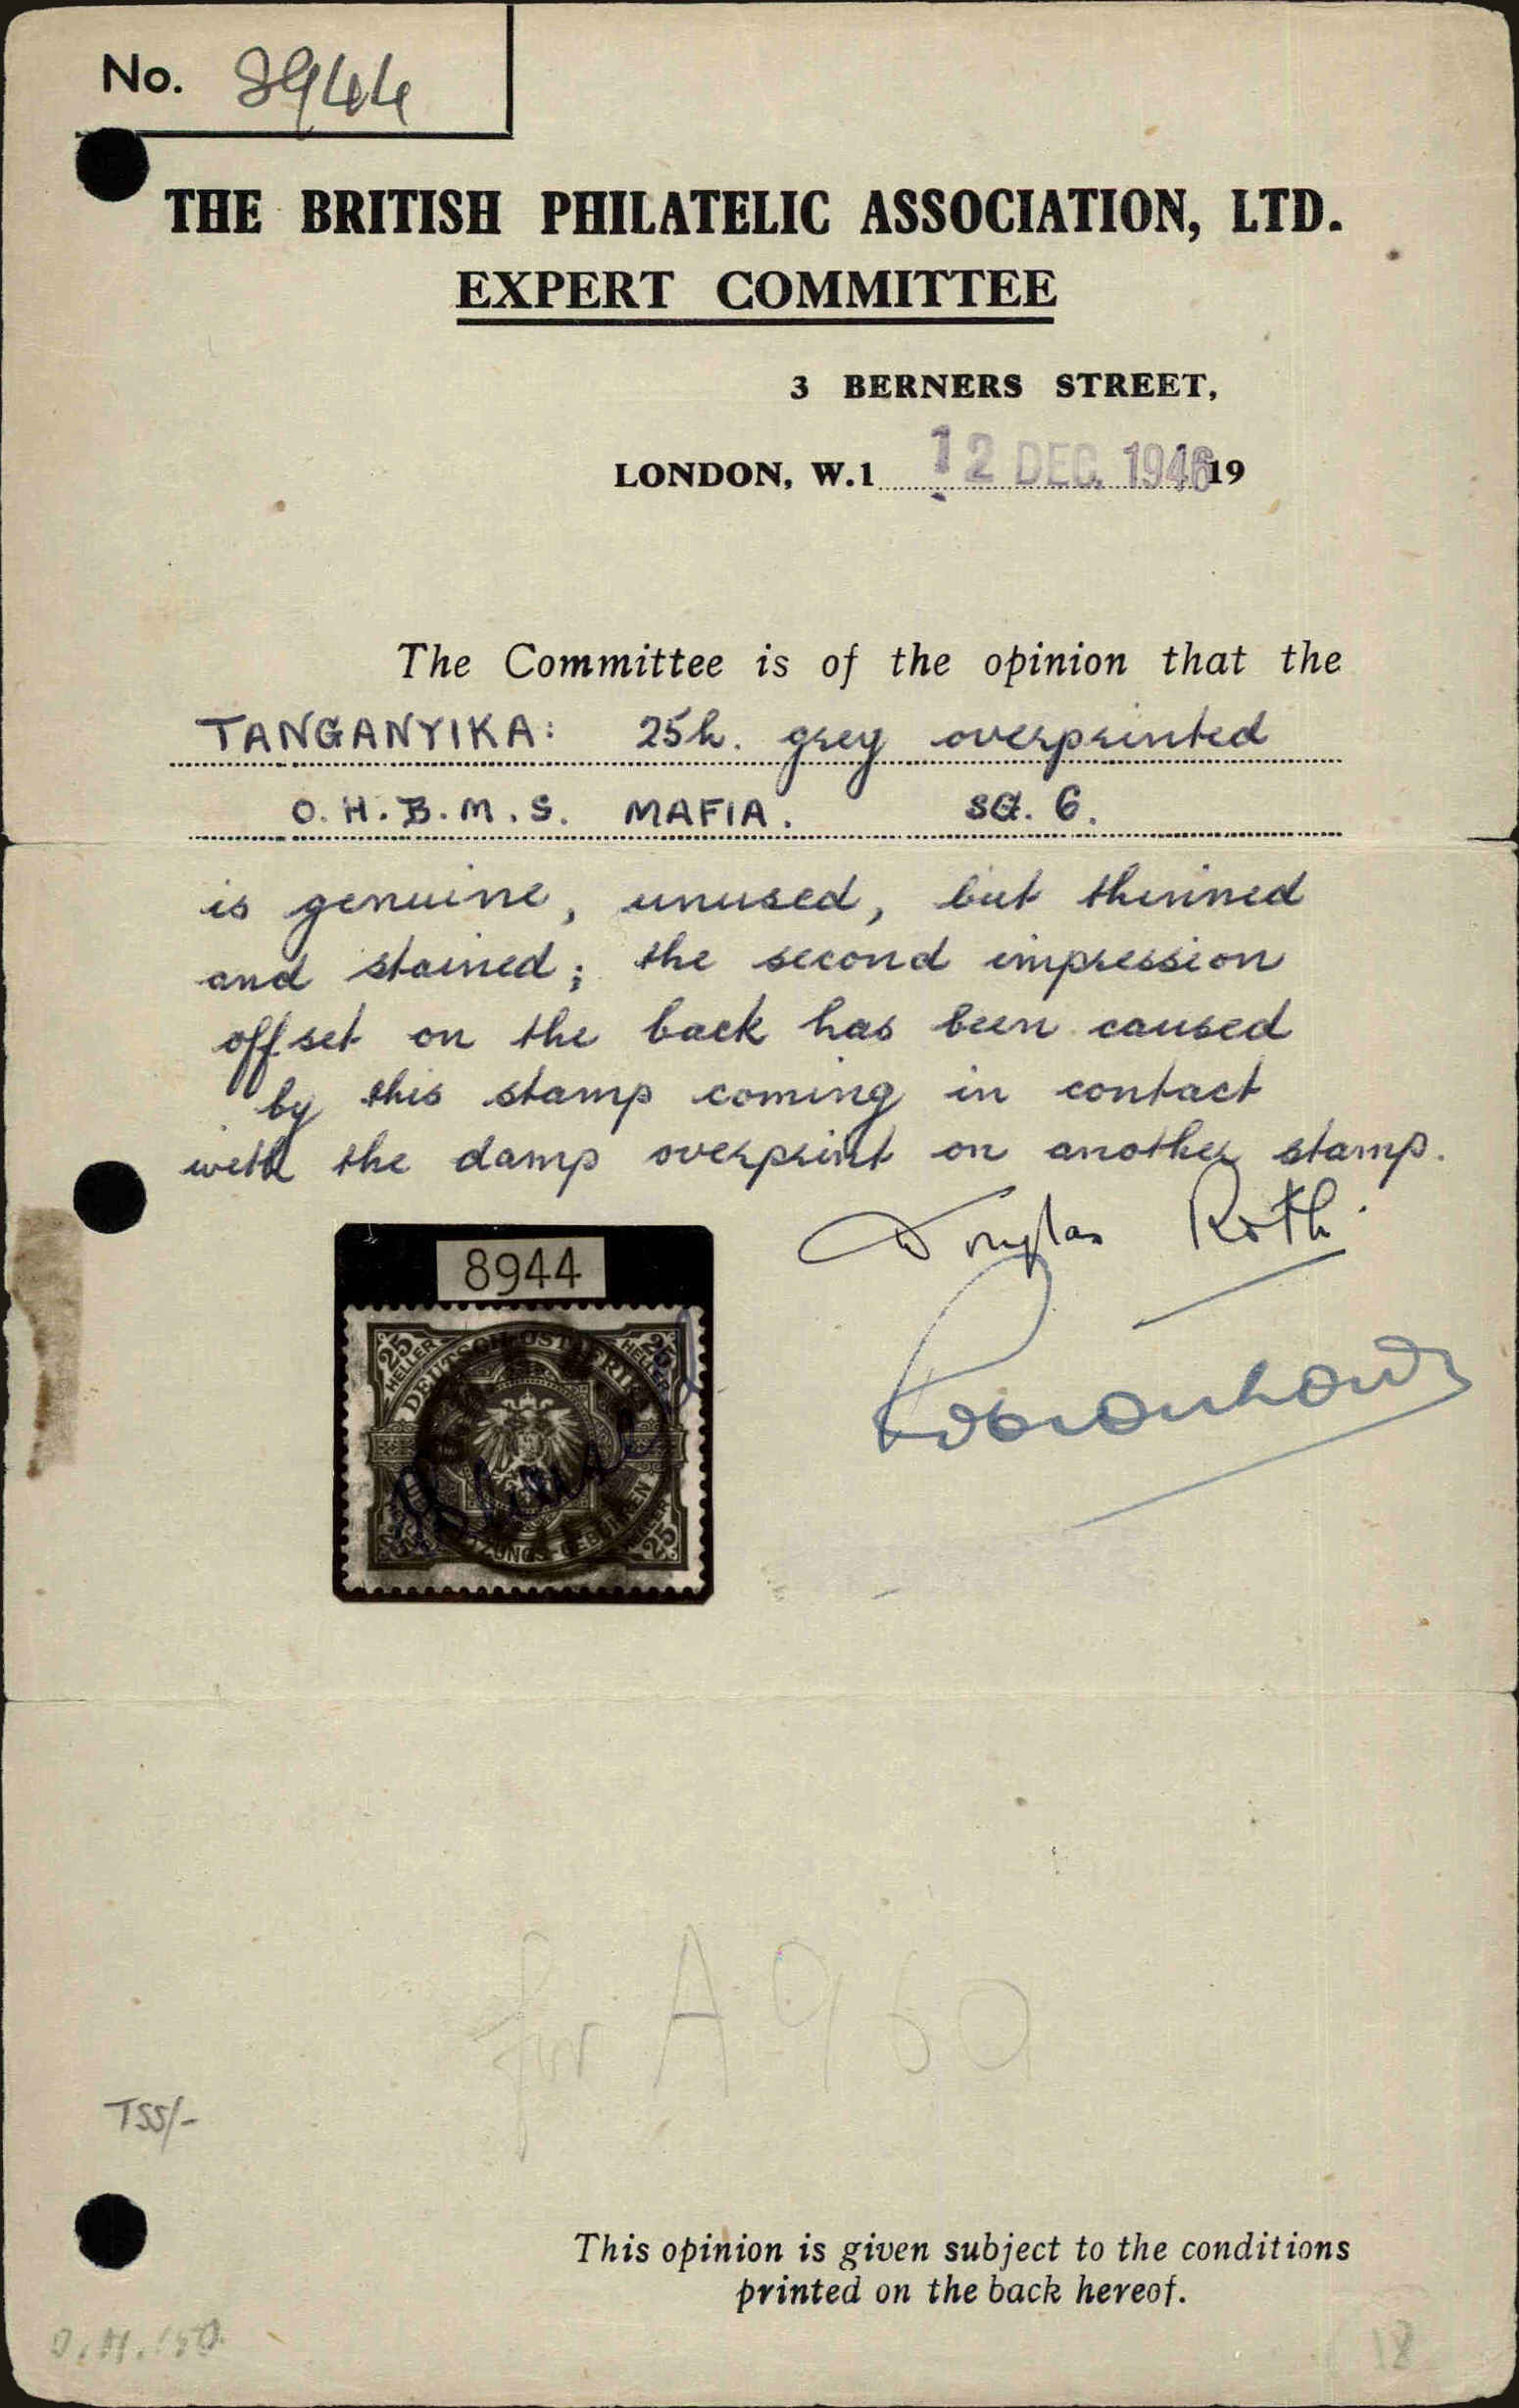 No. 8944
THE BRITISH PHILATELIC ASSOCIATION, LTD.
EXPERT COMMITTEE
3 BERNERS STREET,
LONDON, W.1 12 DEC. 1946 19
The Committee is of the opinion that the
TANGANYIKA: 25h. grey overprinted
O.H.B.M.S. MAFIA. SG. 6.
is genuine, unused, but thinned
and stained; the second impression
offset on the back has been caused
by this stamp coming in contact
with the damp overprint on another stamp.
Douglas Roth
8944
25 HELLER 25 HELLER
DEUTSCH-OSTAFRIKA
25
for A960
TSS/-
This opinion is given subject to the conditions
printed on the back hereof.
18